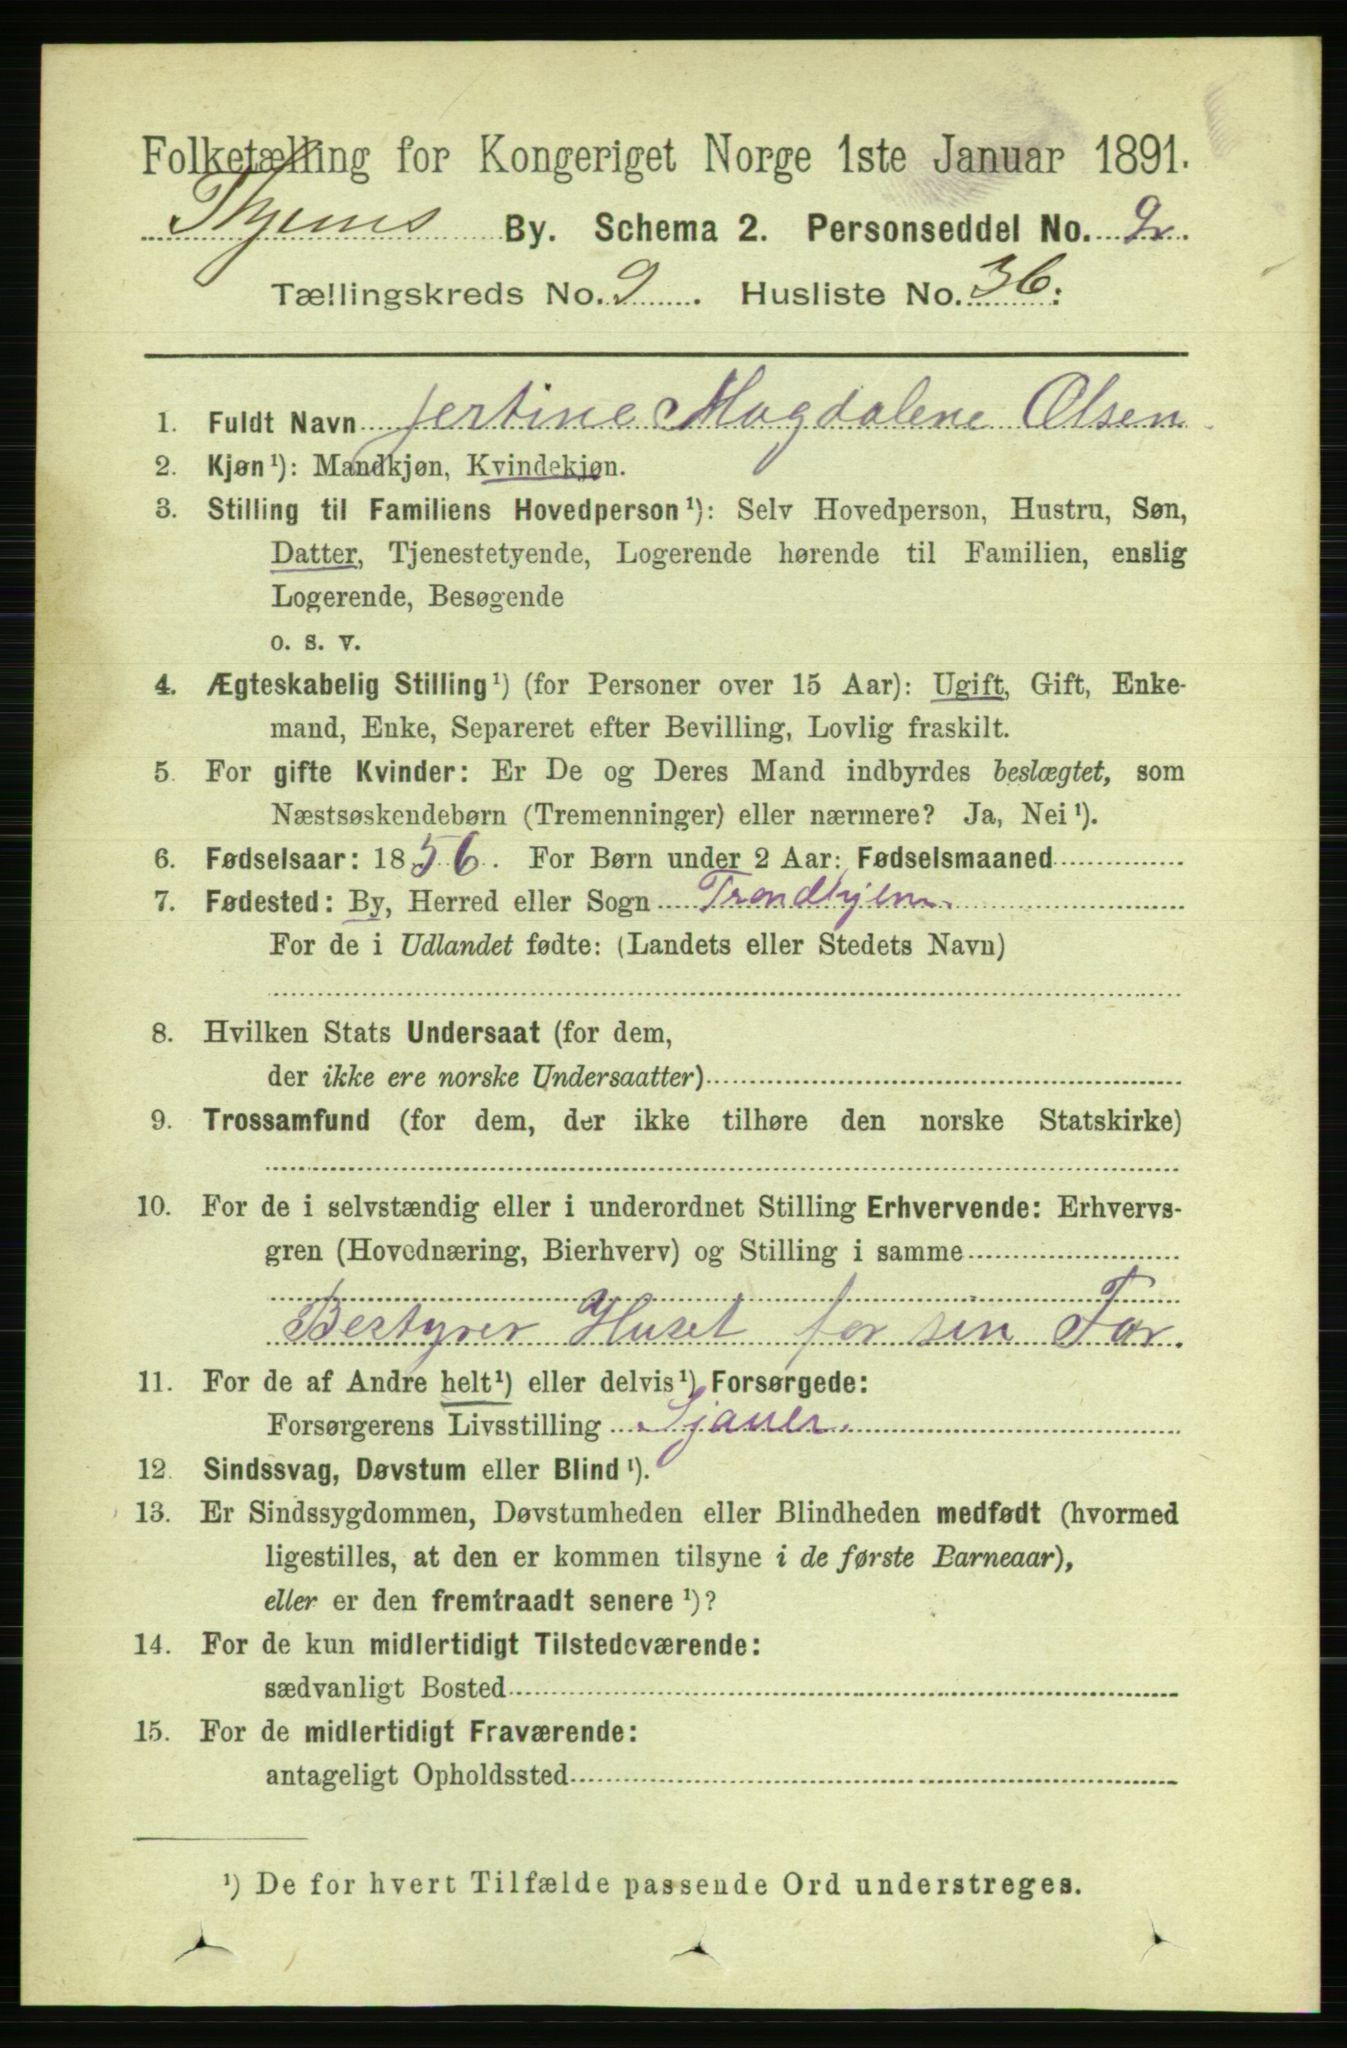 Folketælling for Kongeriget Norge 1ste Januar 1891.
Thjems By. Schema 2. Personseddel No. 2.
Tællingskreds No. 9. Husliste No. 36.
1. Fuldt Navn Jertine Magdalene Olsen
2. Kjøn¹): Mandkjøn, Kvindekjøn.
3. Stilling til Familiens Hovedperson¹): Selv Hovedperson, Hustru, Søn,
Datter, Tjenestetyende, Logerende hørende til Familien, enslig
Logerende, Besøgende
o. s. v.
4. Ægteskabelig Stilling¹) (for Personer over 15 Aar): Ugift, Gift, Enke-
mand, Enke, Separeret efter Bevilling, Lovlig fraskilt.
5. For gifte Kvinder: Er De og Deres Mand indbyrdes beslægtet, som
Næstsøskendebørn (Tremenninger) eller nærmere? Ja, Nei¹).
6. Fødselsaar: 1856. For Børn under 2 Aar: Fødselsmaaned
7. Fødested: By, Herred eller Sogn Trondhjem.
For de i Udlandet fødte: (Landets eller Stedets Navn)
8. Hvilken Stats Undersaat (for dem,
der ikke ere norske Undersaatter)
9. Trossamfund (for dem, der ikke tilhøre den norske Statskirke)
10. For de i selvstændig eller i underordnet Stilling Erhvervende: Erhvervs-
gren (Hovednæring, Bierhverv) og Stilling i samme
Bestyrer Huset for sin Far.
11. For de af Andre helt¹) eller delvis¹) Forsørgede:
Forsørgerens Livsstilling Sjauer.
12. Sindssvag, Døvstum eller Blind¹).
13. Er Sindssygdommen, Døvstumheden eller Blindheden medfødt (hvormed
ligestilles, at den er kommen tilsyne i de første Barneaar),
eller er den fremtraadt senere¹)?
14. For de kun midlertidigt Tilstedeværende:
sædvanligt Bosted
15. For de midlertidigt Fraværende:
antageligt Opholdssted
¹) De for hvert Tilfælde passende Ord understreges.